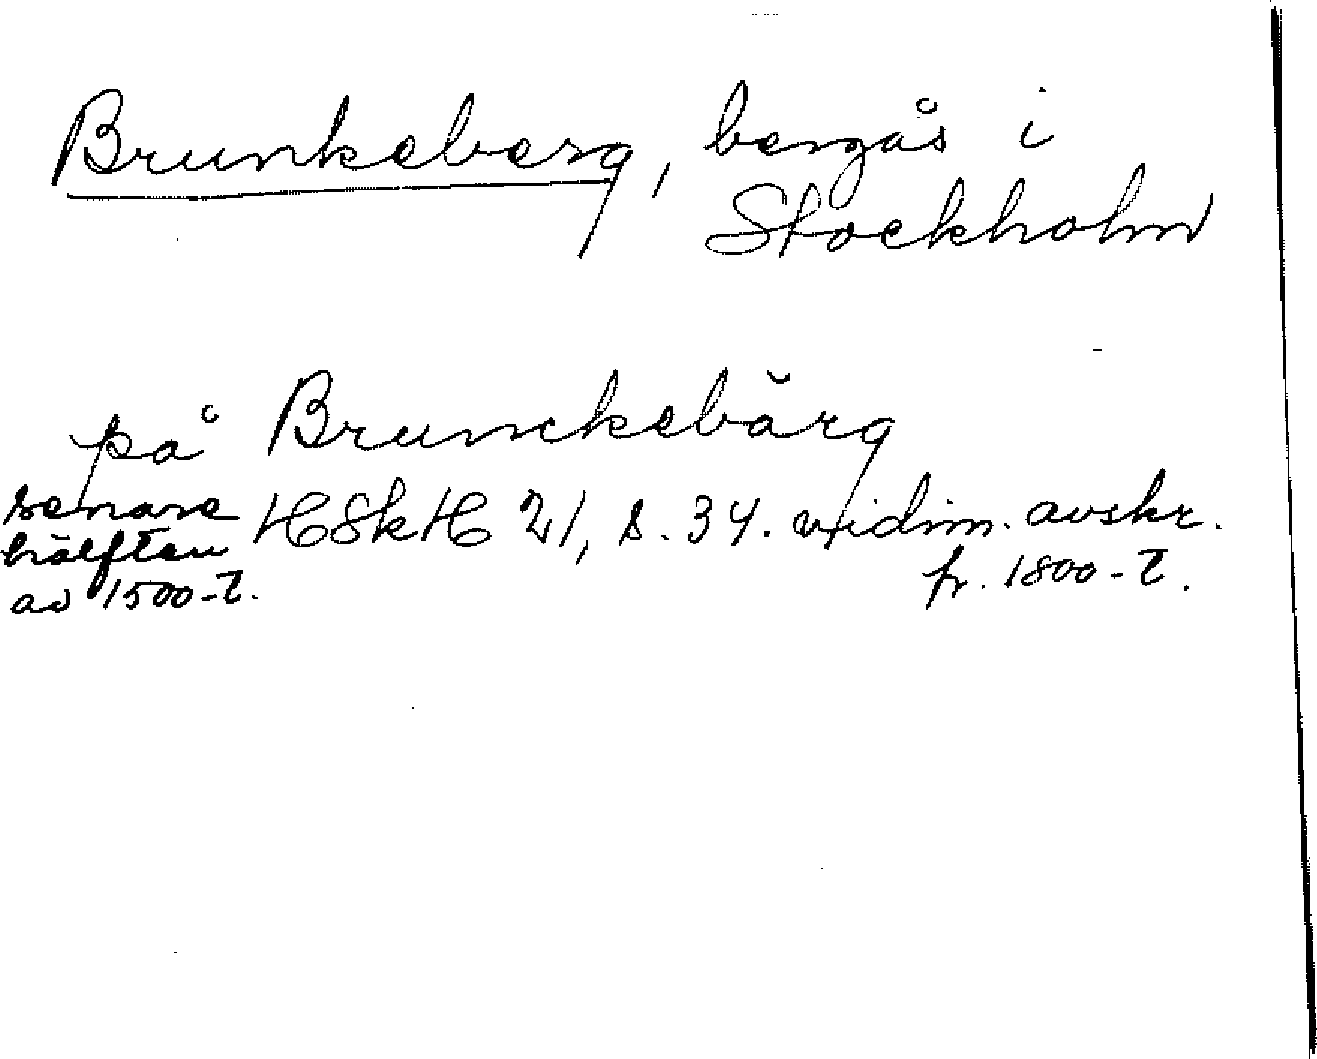 Brunkeberg, bergås i
Stockholm
på Brunckebärg
senare HSkH 21, s. 34. vidim. avskr.
hälften fr. 1800-t.
av 1500-t.